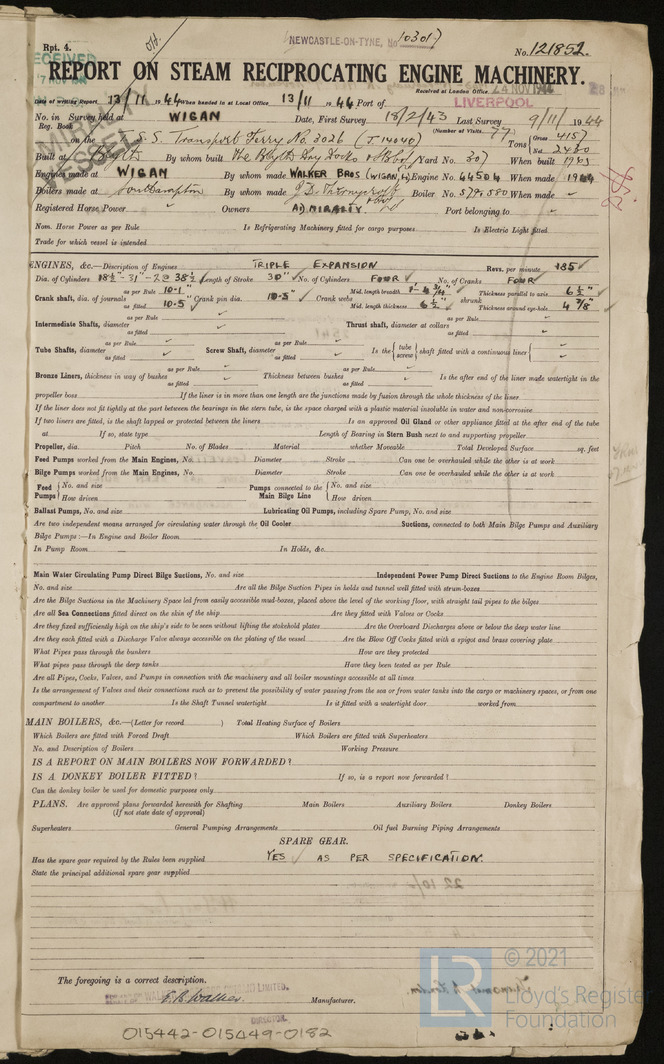 Rpt. 4.
NEWCASTLE-ON-TYNE, No 10301
No. 121852.
RECEIVED
REPORT ON STEAM RECIPROCATING ENGINE MACHINERY.
Received at London Office 24 NOV 1944
Date of writing Report 13/11 1944 When handed in at Local Office 13/11 1944 Port of LIVERPOOL
No. in Survey held at WIGAN Date, First Survey 18/2/43 Last Survey 9/11/1944
Reg. Book (Number of Visits 77)
on the T.S.S. Transport Ferry No. 3026 (J 14040) Tons Gross 4157
Net 2430
Built at Blyth By whom built The Blyth Dry Docks & Yard No. 307 When built 1943
Engines made at WIGAN By whom made WALKER BROS (WIGAN) Engine No. 44504 When made 1944
Boilers made at Southampton By whom made J. I. Thornycroft Boiler No. When made
Registered Horse Power Owners ADMIRALTY Port belonging to
Nom. Horse Power as per Rule Is Refrigerating Machinery fitted for cargo purposes Is Electric Light fitted
Trade for which vessel is intended
ENGINES, &c.—Description of Engines TRIPLE EXPANSION Revs. per minute 185
Dia. of Cylinders 18½"-31"-2@38½" Length of Stroke 30" No. of Cylinders FOUR No. of Cranks FOUR
Crank shaft, dia. of journals as per Rule 10.1" as fitted 10.5" Crank pin dia. 10.5" Crank webs Mid. length breadth 1'-4¾" Mid. length thickness 6½" shrunk Thickness parallel to axis 6½" Thickness around eye-hole 4⅞"
Intermediate Shafts, diameter as per Rule as fitted Thrust shaft, diameter at collars as per Rule as fitted
Tube Shafts, diameter as per Rule as fitted Screw Shaft, diameter as per Rule as fitted Is the { tube screw } shaft fitted with a continuous liner {
Bronze Liners, thickness in way of bushes as per Rule as fitted Thickness between bushes as per Rule as fitted Is the after end of the liner made watertight in the
propeller boss If the liner is in more than one length are the junctions made by fusion through the whole thickness of the liner
If the liner does not fit tightly at the part between the bearings in the stern tube, is the space charged with a plastic material insoluble in water and non-corrosive
If two liners are fitted, is the shaft lapped or protected between the liners Is an approved Oil Gland or other appliance fitted at the after end of the tube
at If so, state type Length of Bearing in Stern Bush next to and supporting propeller
Propeller, dia. Pitch No. of Blades Material whether Moveable Total Developed Surface sq. feet
Feed Pumps worked from the Main Engines, No. Diameter Stroke Can one be overhauled while the other is at work
Bilge Pumps worked from the Main Engines, No. Diameter Stroke Can one be overhauled while the other is at work
Feed Pumps { No. and size How driven Pumps connected to the Main Bilge Line { No. and size How driven
Ballast Pumps, No. and size Lubricating Oil Pumps, including Spare Pump, No. and size
Are two independent means arranged for circulating water through the Oil Cooler Suctions, connected to both Main Bilge Pumps and Auxiliary
Bilge Pumps:—In Engine and Boiler Room
In Pump Room In Holds, &c.
Main Water Circulating Pump Direct Bilge Suctions, No. and size Independent Power Pump Direct Suctions to the Engine Room Bilges,
No. and size Are all the Bilge Suction Pipes in holds and tunnel well fitted with strum-boxes
Are the Bilge Suctions in the Machinery Space led from easily accessible mud-boxes, placed above the level of the working floor, with straight tail pipes to the bilges
Are all Sea Connections fitted direct on the skin of the ship Are they fitted with Valves or Cocks
Are they fixed sufficiently high on the ship's side to be seen without lifting the stokehold plates Are the Overboard Discharges above or below the deep water line
Are they each fitted with a Discharge Valve always accessible on the plating of the vessel Are the Blow Off Cocks fitted with a spigot and brass covering plate
What Pipes pass through the bunkers How are they protected
What pipes pass through the deep tanks Have they been tested as per Rule
Are all Pipes, Cocks, Valves, and Pumps in connection with the machinery and all boiler mountings accessible at all times
Is the arrangement of Valves and their connections such as to prevent the possibility of water passing from the sea or from water tanks into the cargo or machinery spaces, or from one
compartment to another Is the Shaft Tunnel watertight Is it fitted with a watertight door worked from
MAIN BOILERS, &c.—(Letter for record ) Total Heating Surface of Boilers
Which Boilers are fitted with Forced Draft Which Boilers are fitted with Superheaters
No. and Description of Boilers Working Pressure
IS A REPORT ON MAIN BOILERS NOW FORWARDED?
IS A DONKEY BOILER FITTED? If so, is a report now forwarded?
Can the donkey boiler be used for domestic purposes only
PLANS. Are approved plans forwarded herewith for Shafting Main Boilers Auxiliary Boilers Donkey Boilers
(If not state date of approval)
Superheaters General Pumping Arrangements Oil fuel Burning Piping Arrangements
SPARE GEAR.
Has the spare gear required by the Rules been supplied YES AS PER SPECIFICATION.
State the principal additional spare gear supplied
The foregoing is a correct description.
E. B. Walker Manufacturer.
DIRECTOR.
015442-015449-0182
© 2021
LR
Lloyd's Register
Foundation